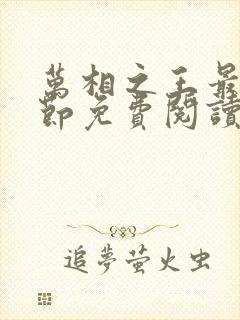 萬相之王最
節免費閱讀
追夢萤火虫